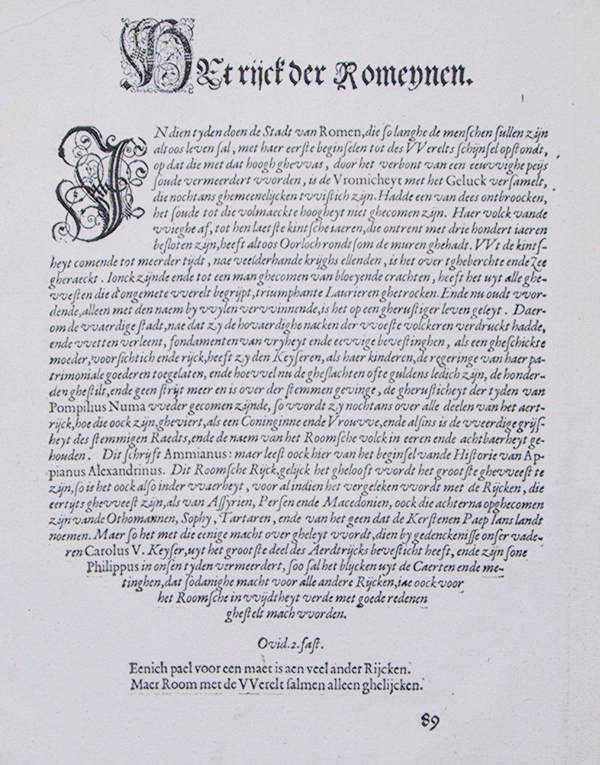 HEt rijck der Romeynen.
IN dien tyden doen de Stadt van Romen, die so langhe de menschen sullen zijn
altoos leven sal, met haer eerste beginselen tot des VVerelts schijnsel opstondt,
op dat die met dat hoogh ghevvas, door het verbont van een euvvighe peijs
soude vermeerdert vvorden, is de Vromicheyt met het Geluck versamelt,
die nochtans ghemeenelijcken tvvistich zijn. Hadde een van dees ontbroocken,
het soude tot die volmaeckte hoogheyt niet ghecomen zijn. Haer volck vande
vvieghe af, tot hen laetste kintsche iaeren, die ontrent met drie hondert iaeren
besloten zijn, heeft altoos Oorloch rondtsom de muren ghehadt. VVt de kints-
heyt comende tot meerder tijdt, nae veelderhande krijghs ellenden, is het over tgheberchte ende Zee
gheraeckt. Ionck zijnde ende tot een man ghecomen van bloeyende crachten, heeft het uyt alle ghe-
vvesten die d'ongemete vverelt begrijpt, triumphante Laurieren ghetrocken. Ende nu oudt vvor-
dende, alleen met den naem by vvylen vervvinnende, is het op een gherustiger leven geleyt. Daer-
om de vvaerdige stadt, nae dat zy de hovaerdighe nacken der vvoeste volckeren verdruckt hadde,
ende vvetten verleent, fondamenten van vryheyt ende eevvige bevestinghen, als een gheschickte
moeder, voorsichtich ende rijck, heeft zy den Keyseren, als haer kinderen, de regeringe van haer pa-
trimoniale goederen toegelaten, ende hoevvel nu de gheslachten ofte guldens ledich zijn, de honder-
den ghestilt, ende geen strijt meer en is over der stemmen gevinge, de gherusticheyt der tyden van
Pompilius Numa vveder gecomen zijnde, so vvordt zy nochtans over alle deelen van het aert-
rijck, hoe die oock zijn, gheviert, als een Coninginne ende Vrouvve, ende alsins is de vveerdige grijs-
heyt des stemmigen Raedts, ende de naem van het Roomsche volck in eeren ende achtbaerheyt ge-
houden. Dit schrijft Ammianus: maer leest oock hier van het beginsel vande Historie van Ap-
pianus Alexandrinus. Dit Roomsche Rijck, gelijck het ghelooft vvordt het grootste ghevveest te
zijn, so is het oock also inder vvaerheyt, voor al indien het vergeleken vvordt met de Rijcken, die
eertijts ghevveest zijn, als van Assyrien, Persen ende Macedonien, oock die achterna opghecomen
zijn vande Othomannen, Sophy, Tartaren, ende van het geen dat de Kerstenen Paep Ians landt
noemen. Maer so het met die eenige macht over gheleyt vvordt, dien by gedenckenisse onser vade-
ren Carolus V. Keyser, uyt het grootste deel des Aerdtrijcks bevesticht heeft, ende zijn sone
Philippus in onsen tyden vermeerdert, soo sal het blijcken uyt de Caerten ende me-
tinghen, dat sodanighe macht voor alle andere Rijcken, iae oock voor
het Roomsche in vvijdtheyt verde met goede redenen
ghestelt mach vvorden.
Ovid. 2. fast.
Eenich pael voor een maet is aen veel ander Rijcken.
Maer Room met de VVerelt salmen alleen ghelijcken.
89